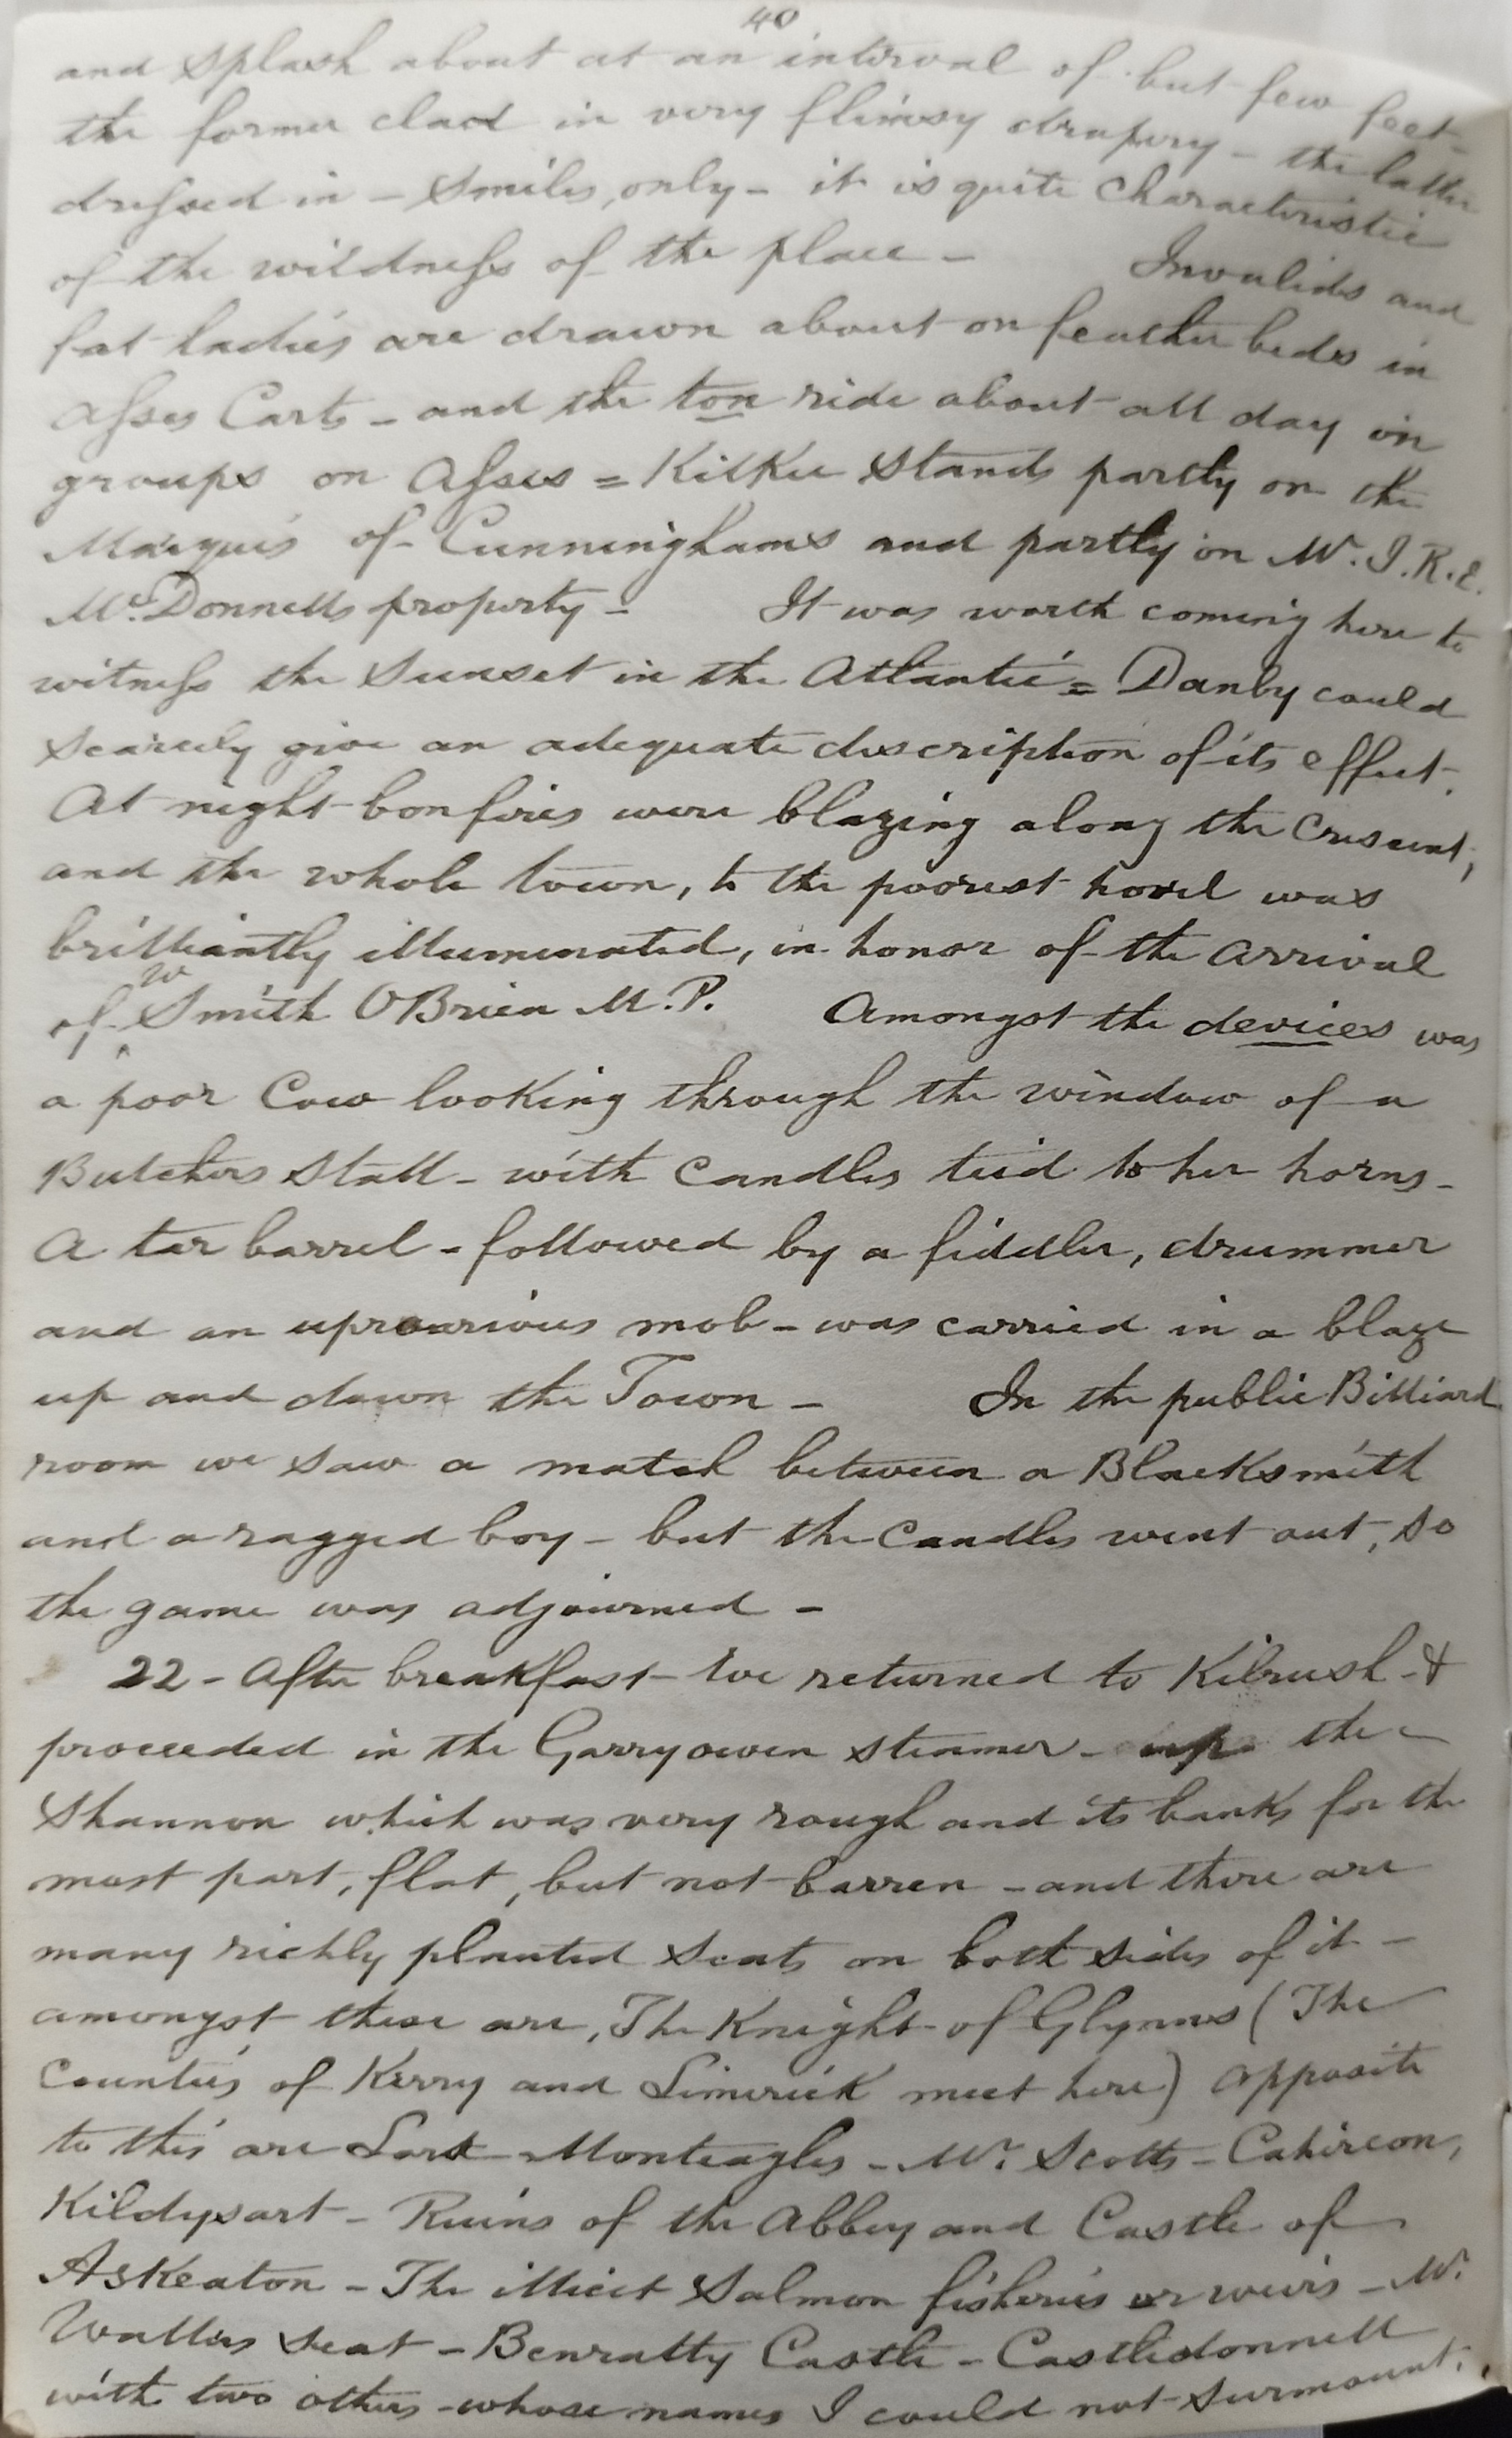 40
and splash about at an interval of but few feet -
the former clad in very flimsy drapery - the latter
dressed in - smiles, only - it is quite characteristic
of the wildness of the place - Invalids and
fat ladies are drawn about on feather beds in
Asses Carts - and the ton ride about all day in
groups on Asses = Kilkee stands partly on the
Marquis of Cunninghams and partly on Mr. J. R. E.
McDonnells property - It was worth coming here to
witness the Sunset in the Atlantic = Danby could
scarcely give an adequate description of its effect.
At night bonfires were blazing along the Crescent,
and the whole town, to the poorest hovel was
brilliantly illuminated, in honor of the arrival
of W Smith OBrien M.P. Amongst the devices was
a poor Cow looking through the window of a
Butchers Stall - with Candles tied to her horns -
A tar barrel - followed by a fiddler, drummer
and an uproarious mob - was carried in a blaze
up and down the Town - In the public Billiard
room we saw a match between a Blacksmith
and a ragged boy - but the Candles went out, so
the game was adjourned -
22 - After breakfast we returned to Kilrush - &
proceeded in the Garryowen steamer - up the
Shannon which was very rough and its banks for the
most part, flat, but not barren - and there are
many richly planted Seats on both sides of it -
amongst these are, The Knight of Glynns (The
Counties of Kerry and Limerick meet here) opposite
to this are Lord Monteagles - Mr. Scotts - Cahircon,
Kildysart - Ruins of the Abbey and Castle of
Askeaton - The illicit Salmon fisheries or weirs - Mr.
Wallers seat - Benratty Castle - Castledonnell
with two others - whose names I could not surmount.